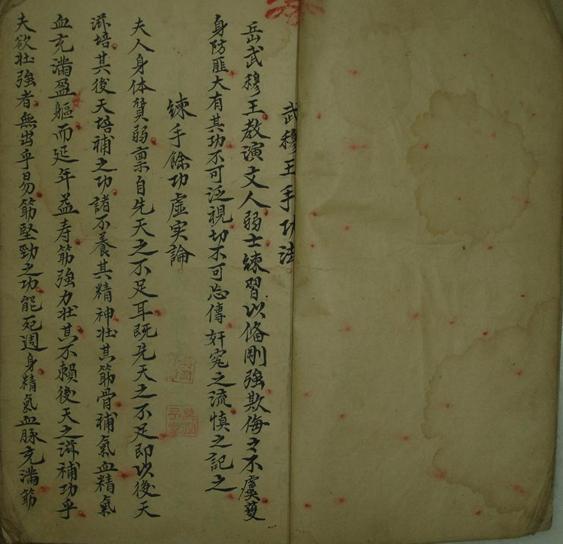 武穆王手功法
岳武穆王教演文人弱士練習以備剛強欺侮之不虞並
身防匪大有其功不可泛視切不可忘傳奸宄之流慎之記之
練手餘功虛实論
夫人身体貭弱禀自先天之不足耳既先天之不足即以後天
滋培其後天培補之功諸不養其精神壮其筋骨補氣血精氣
血充滿盈軀而延年益寿筋強力壮其不賴後天之滋補功乎
夫欲壮強者無出乎易筋堅勁之功能死週身精氣血脉充滿筋